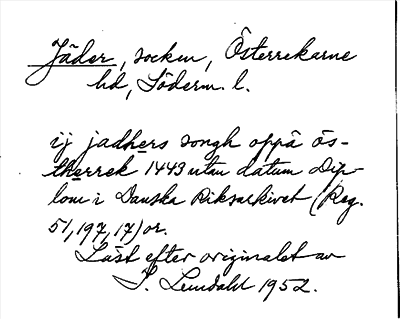 Jäder, socken, Österrekarne
hd, Söderm. l.
ij jadhers songh oppâ ös-
therrek 1449 utan datum Dip-
lom i Danska Riksarkivet (Reg.
51,197,17) or.
Läst efter originalet av
I. Lundahl 1952.